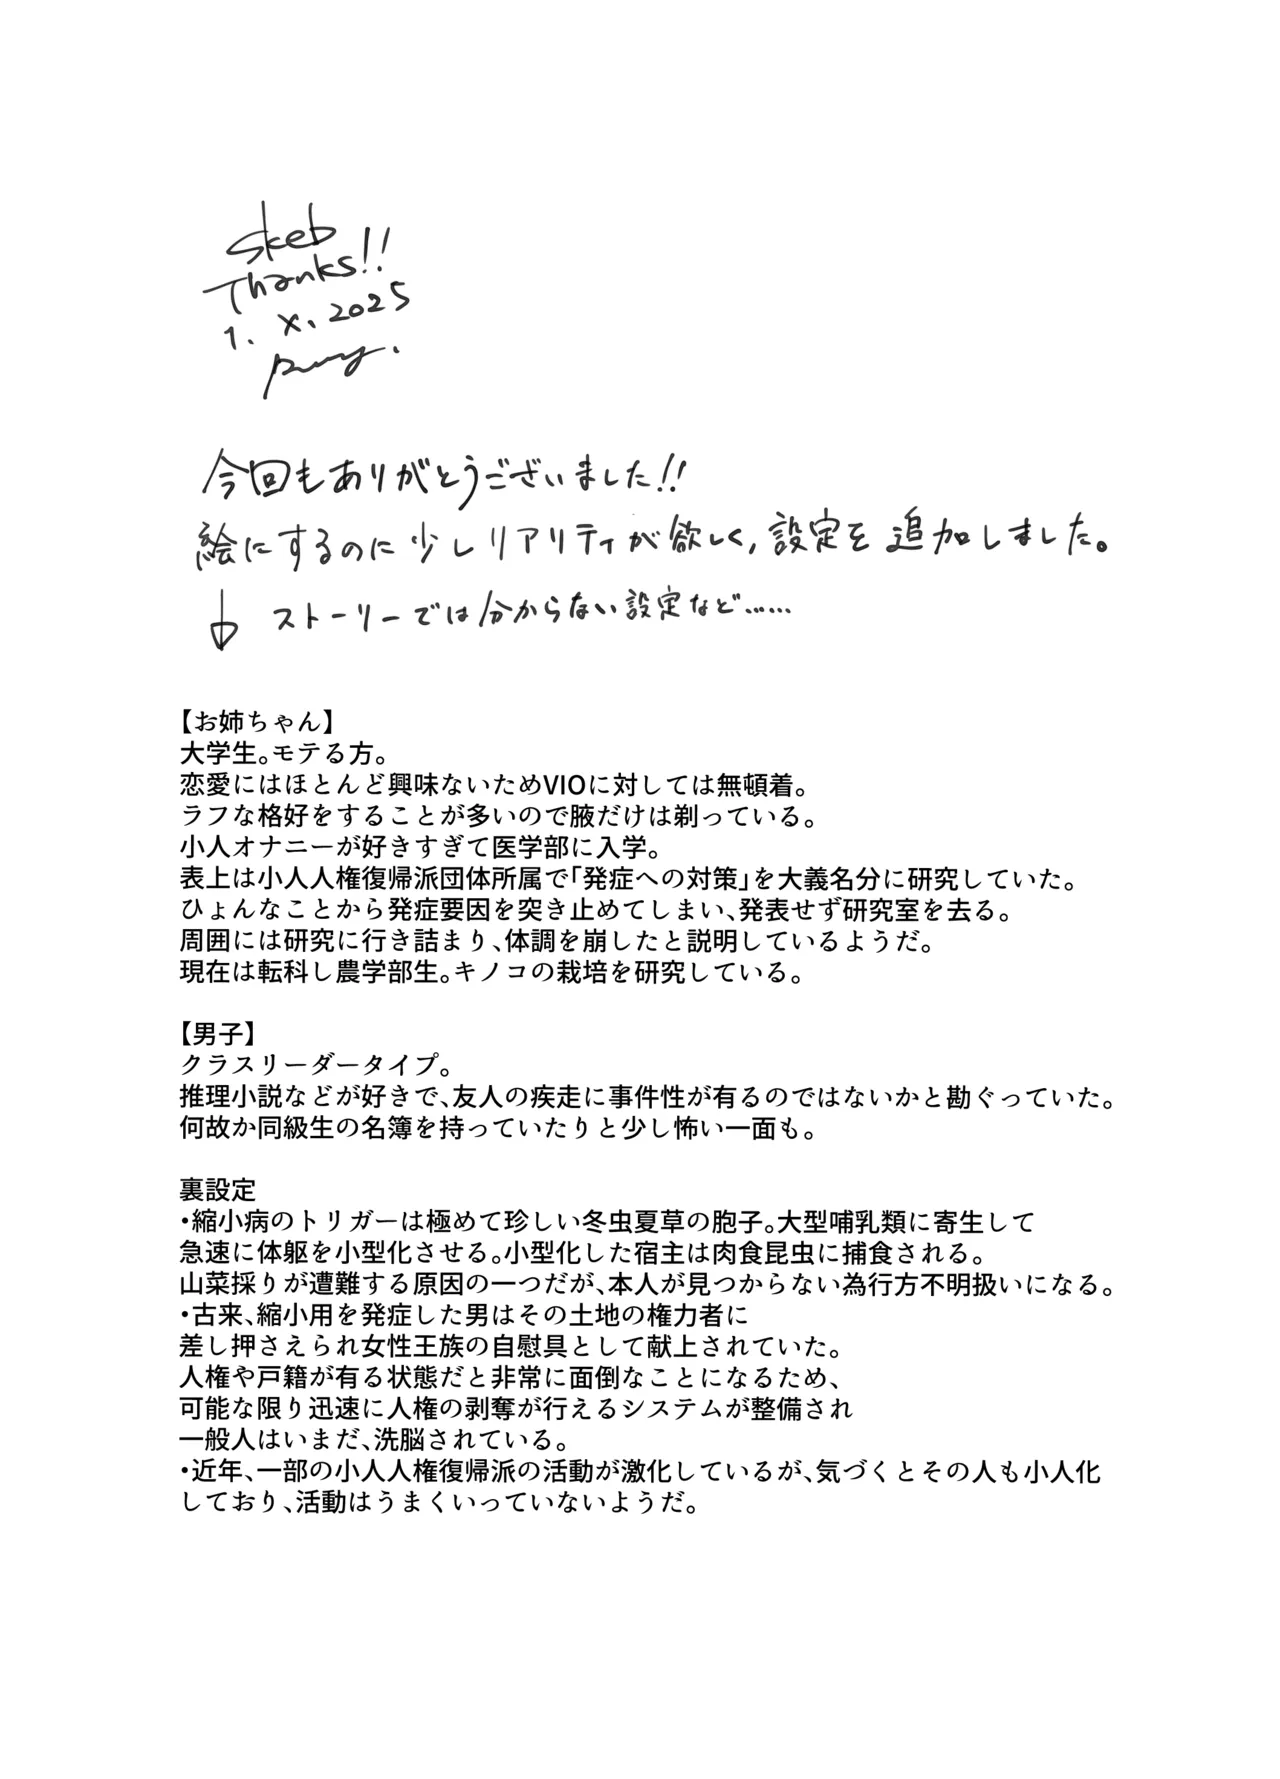 Skeb
Thanks!!
1. X. 2025
今回もありがとうございました!!
絵にするのに少しリアリティが欲しく,設定を追加しました。
↓ ストーリーでは分からない設定など……
【お姉ちゃん】
大学生。モテる方。
恋愛にはほとんど興味ないためVIOに対しては無頓着。
ラフな格好をすることが多いので腋だけは剃っている。
小人オナニーが好きすぎて医学部に入学。
表上は小人人権復帰派団体所属で「発症への対策」を大義名分に研究していた。
ひょんなことから発症要因を突き止めてしまい、発表せず研究室を去る。
周囲には研究に行き詰まり、体調を崩したと説明しているようだ。
現在は転科し農学部生。キノコの栽培を研究している。
【男子】
クラスリーダータイプ。
推理小説などが好きで、友人の疾走に事件性が有るのではないかと勘ぐっていた。
何故か同級生の名簿を持っていたりと少し怖い一面も。
裏設定
・縮小病のトリガーは極めて珍しい冬虫夏草の胞子。大型哺乳類に寄生して
急速に体躯を小型化させる。小型化した宿主は肉食昆虫に捕食される。
山菜採りが遭難する原因の一つだが、本人が見つからない為行方不明扱いになる。
・古来、縮小用を発症した男はその土地の権力者に
差し押さえられ女性王族の自慰具として献上されていた。
人権や戸籍が有る状態だと非常に面倒なことになるため、
可能な限り迅速に人権の剥奪が行えるシステムが整備され
一般人はいまだ、洗脳されている。
・近年、一部の小人人権復帰派の活動が激化しているが、気づくとその人も小人化
しており、活動はうまくいっていないようだ。